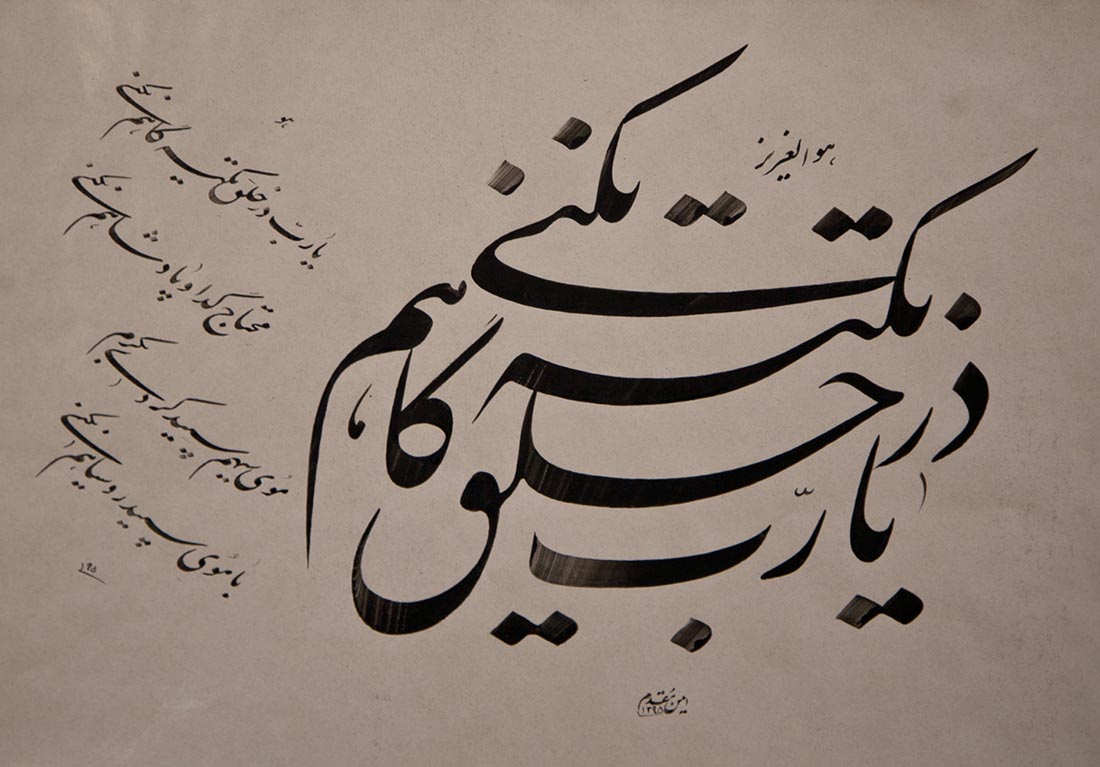 هو العزیز
یا رب در خلق تکیه گاهم نکنی
هو
یا رب در خلق تکیه گاهم نکنی
محتاج گدا و پادشاهم نکنی
موی سیهم سپید کردی بکرم
با موی سپید روسیاهم نکنی
امین مقدم
۱۳۹۵